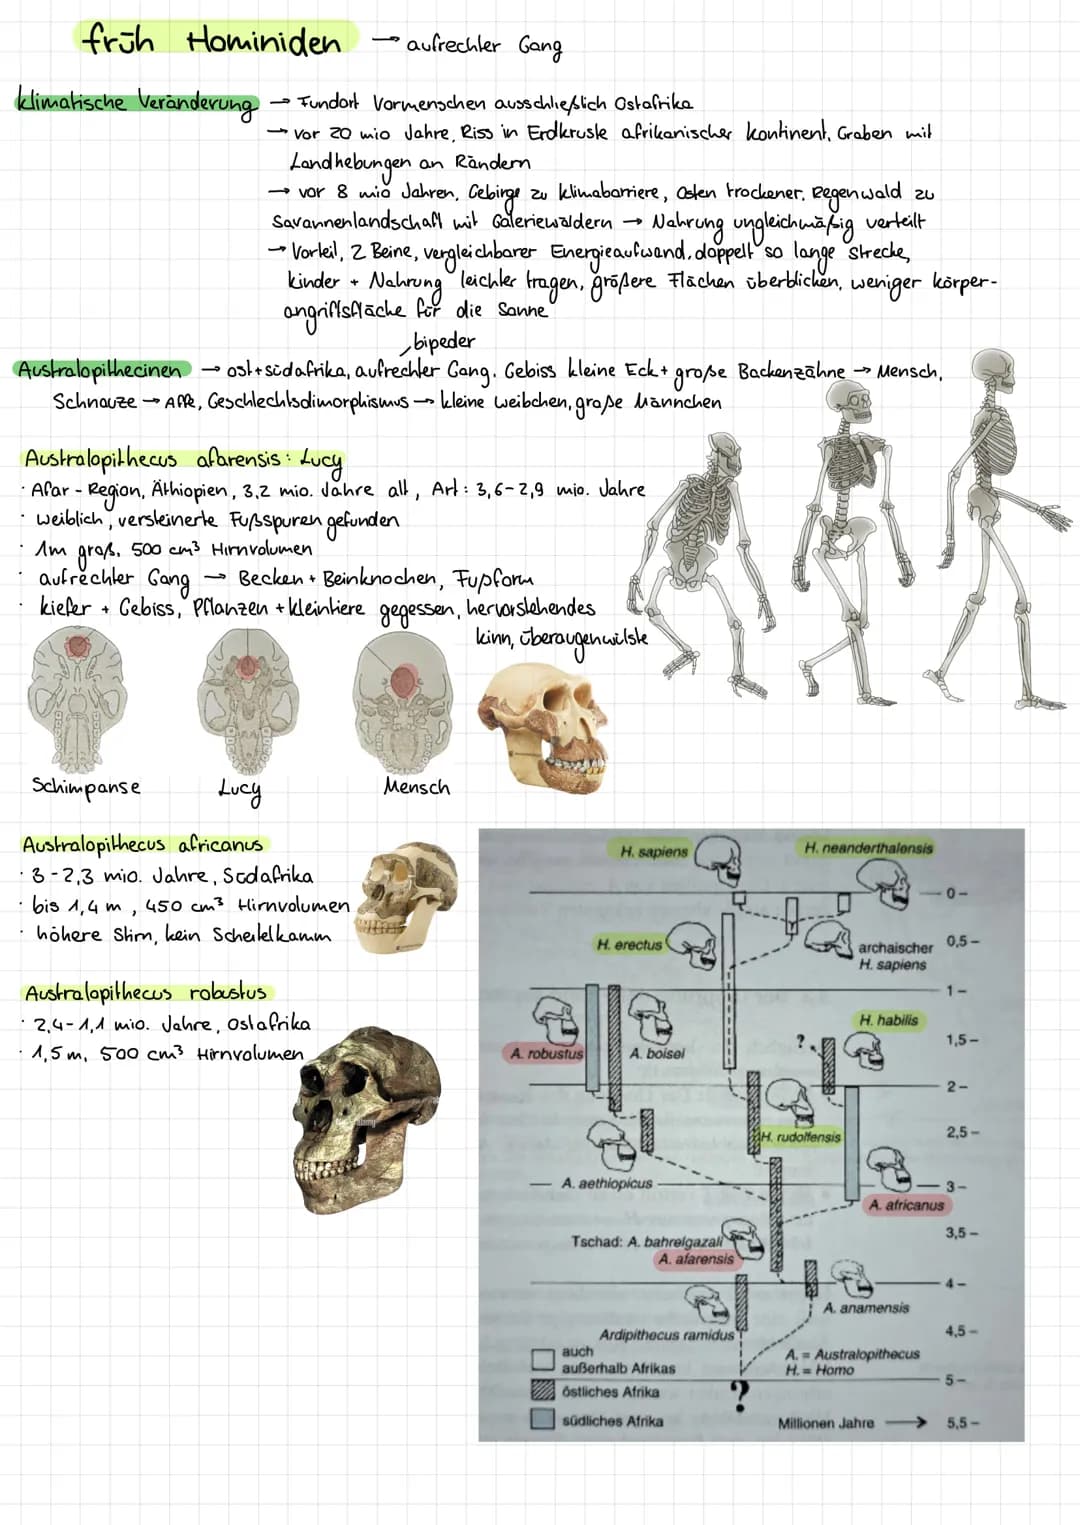 früh Hominiden → aufrechter Gang
klimatische Veränderung → Fundort Vormenschen ausschließlich Ostafrika
→ vor 20 mio Jahre, Riss in Erdkruste afrikanischer kontinent, Graben mit
Landhebungen an Rändern
→ vor 8 mio Jahren, Gebirge zu klimabarriere, Osten trockener, Regenwald zu
Savannenlandschaft mit Galeriewäldern → Nahrung ungleichmäßig verteilt
→ Vorteil, 2 Beine, vergleichbarer Energieaufwand, doppelt so lange strecke,
kinder + Nahrung leichter tragen, größere Flächen überblicken, weniger körper-
angriffsfläche für die Sonne
bipeder
Australopithecinen → ost+südafrika, aufrechter Gang, Gebiss kleine Eck+ große Backenzähne → Mensch,
Schnauze → Affe, Geschlechtsdimorphismus → kleine weibchen, große Männchen
Australopithecus afarensis: Lucy
· Afar - Region, Äthiopien, 3,2 mio. Jahre alt, Art: 3,6-2,9 mio. Jahre
· weiblich, versteinerte Fußspuren gefunden
· 1m groß, 500 cm³ Hirnvolumen
· aufrechter Gang → Becken + Beinknochen, Fußform
· kiefer + Gebiss, Pflanzen + kleintiere gegessen, hervorstehendes
kinn, überaugenwülste
Schimpanse Lucy Mensch
Australopithecus africanus
· 3-2,3 mio. Jahre, Südafrika
· bis 1,4 m, 450 cm³ Hirnvolumen
· höhere Stirn, kein Scheitelkamm
Australopithecus robustus
· 2,4-1,1 mio. Jahre, Ostafrika
· 1,5 m, 500 cm³ Hirnvolumen
H. sapiens H. neanderthalensis
0-
H. erectus archaischer 0,5-
H. sapiens
1-
H. habilis
A. robustus A. boisei ? 1,5-
2-
H. rudolfensis 2,5-
A. aethiopicus 3-
A. africanus
Tschad: A. bahrelgazali 3,5-
A. afarensis
4-
A. anamensis
Ardipithecus ramidus 4,5-
auch
außerhalb Afrikas
A. = Australopithecus
H. = Homo
östliches Afrika ? 5-
südliches Afrika Millionen Jahre → 5,5-